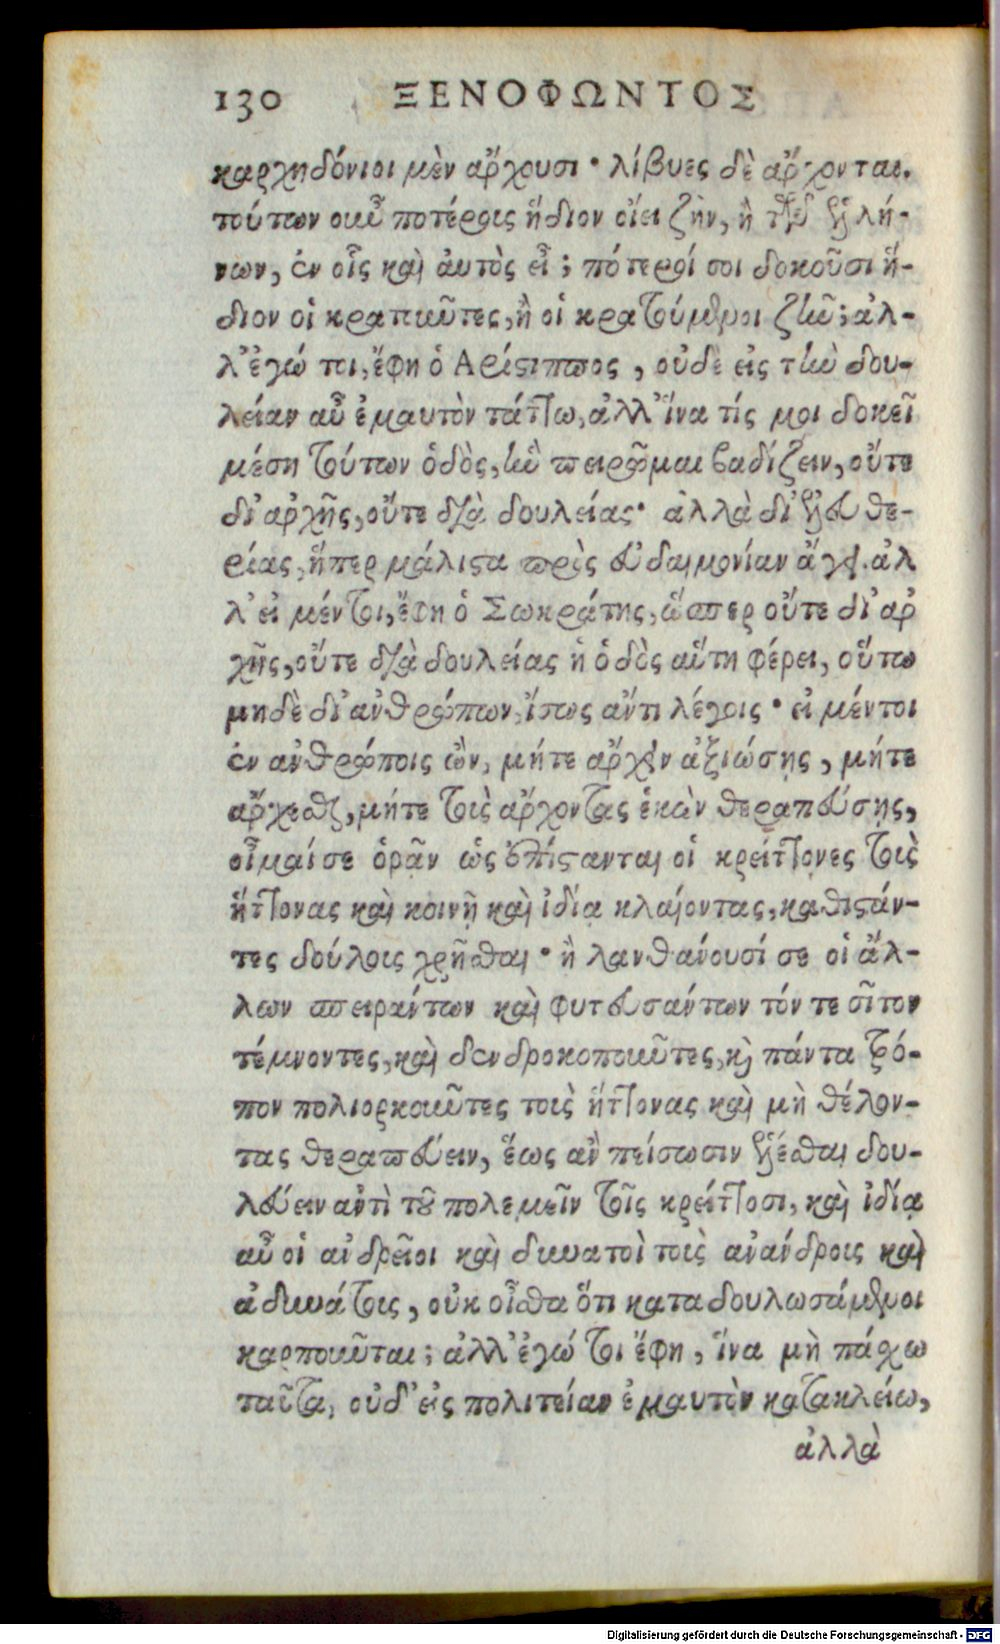 130 ΞΕΝΟΦΩΝΤΟΣ
καρχηδόνιοι μὲν ἄρχουσι· λίβυες δὲ ἄρχονται.
τούτων οὖν ποτέροις ἥδιον οἴει ζῆν, ἢ τῶν ἑλλή-
νων, ἐν οἷς καὶ ἀυτὸς εἶ; πότεροί σοι δοκοῦσι ἥ-
διον οἱ κρατοῦντες, ἢ οἱ κρατούμενοι ζῆν; ἀλ-
λ' ἐγώ τοι, ἔφη ὁ Αρίστιππος, οὐδὲ εἰς τὴν δου-
λείαν αὖ ἐμαυτὸν τάττω, ἀλλ' ἵνα τίς μοι δοκεῖ
μέση τούτων ὁδὸς, ἣν πειρῶμαι βαδίζειν, οὔτε
δι' ἀρχῆς, οὔτε διὰ δουλείας· ἀλλὰ δι' ἐλευθε-
ρίας, ἥπερ μάλιστα πρὸς εὐδαιμονίαν ἄγει. ἀλ
λ' εἰ μέντοι, ἔφη ὁ Σωκράτης, ὥσπερ οὔτε δι' ἀρ
χῆς, οὔτε διὰ δουλείας ἡ ὁδὸς αὕτη φέρει, οὕτω
μηδὲ δι' ἀνθρώπων, ἴσως ἄν τι λέγοις· εἰ μέντοι
ἐν ἀνθρώποις ὢν, μήτε ἄρχειν ἀξιώσῃς, μήτε
ἄρχεσθαι, μήτε τοὺς ἄρχοντας ἑκὼν θεραπεύσῃς,
οἶμαί σε ὁρᾶν ὡς ἐπίστανται οἱ κρείττονες τοὺς
ἥττονας καὶ κοινῇ καὶ ἰδίᾳ κλαίοντας, καθιστάν-
τες δούλοις χρῆσθαι· ἢ λανθάνουσί σε οἱ ἄλ-
λων σπειράντων καὶ φυτευσάντων τόν τε σῖτον
τέμνοντες, καὶ δενδροκοποῦντες, καὶ πάντα τρό-
πον πολιορκοῦντες τοὺς ἥττονας καὶ μὴ θέλον-
τας θεραπεύειν, ἕως ἂν πείσωσιν ἑλέσθαι δου-
λεύειν ἀντὶ τοῦ πολεμεῖν τοῖς κρείττοσι, καὶ ἰδίᾳ
αὖ οἱ ἀνδρεῖοι καὶ δυνατοὶ τοὺς ἀνάνδρους καὶ
ἀδυνάτους, οὐκ οἶσθα ὅτι καταδουλωσάμενοι
καρποῦνται; ἀλλ' ἐγώ τοι ἔφη, ἵνα μὴ πάσχω
ταῦτα, οὐδ' εἰς πολιτείαν ἐμαυτὸν κατακλείω,
ἀλλὰ
Digitalisierung gefördert durch die Deutsche Forschungsgemeinschaft - DFG